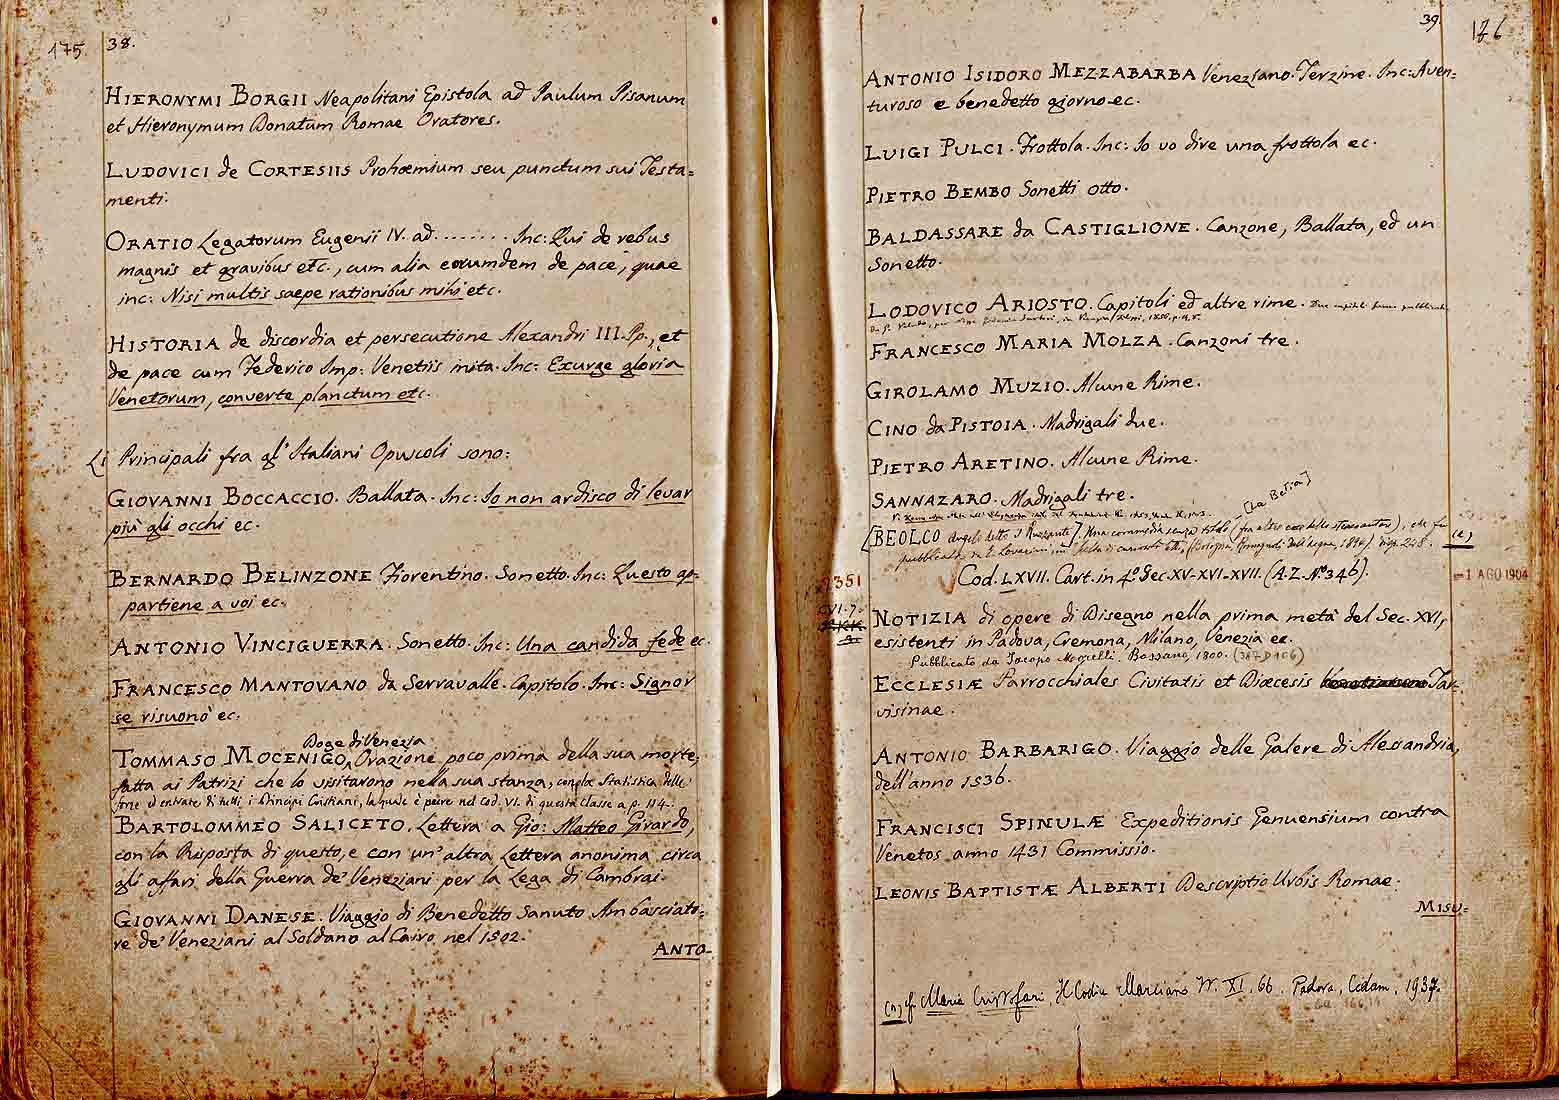 175
38.
HIERONYMI BORGII Neapolitani Epistola ad Paulum Pisanum
et Hieronymum Donatum Romae Oratores.
LUDOVICI de CORTESIIS Prohœmium seu punctum sui Testa=
menti.
ORATIO Legatorum Eugenii IV. ad........ Inc: Qui de rebus
magnis et gravibus etc., cum alia eorumdem de pace, quae
inc: Nisi multis saepe rationibus mihi etc.
HISTORIA de discordia et persecutione Alexandri III. Pp., et
de pace cum Federico Imp: Venetiis inita. Inc: Exurge gloria
Venetorum, converte planctum etc.
Li Principali fra gl' Italiani Opuscoli sono:
GIOVANNI BOCCACCIO. Ballata. Inc: Io non ardisco di levar
più gli occhi ec.
BERNARDO BELINZONE Fiorentino. Sonetto. Inc: Questo ap=
partiene a voi ec.
ANTONIO VINCIGUERRA. Sonetto. Inc: Una candida fede ec.
FRANCESCO MANTOVANO da Serravalle. Capitolo. Inc: Signor
se risuonò ec.
Doge di Venezia
TOMMASO MOCENIGO, Orazione poco prima della sua morte,
fatta ai Patrizi che lo visitarono nella sua stanza, con la Statistica delle
forze ed entrate di tutti i Principi Cristiani, la quale è pure nel Cod. VI. di questa Classe a p. 114.
BARTOLOMMEO SALICETO. Lettera a Gio: Matteo Girardo,
con la Risposta di questo, e con un' altra Lettera anonima circa
gli affari della Guerra de' Veneziani per la Lega di Cambrai.
GIOVANNI DANESE. Viaggio di Benedetto Sanuto Ambasciato=
re de' Veneziani al Soldano al Cairo nel 1502.
ANTO-
39.
176
ANTONIO ISIDORO MEZZABARBA Veneziano. Terzine. Inc: Aven=
turoso e benedetto giorno ec.
LUIGI PULCI. Frottola. Inc: Io vo dire una frottola ec.
PIETRO BEMBO Sonetti otto.
BALDASSARE da CASTIGLIONE. Canzone, Ballata, ed un
Sonetto.
LODOVICO ARIOSTO. Capitoli ed altre rime. Due capitoli furono pubblicati
FRANCESCO MARIA MOLZA. Canzoni tre.
GIROLAMO MUZIO. Alcune Rime.
CINO da PISTOIA. Madrigali due.
PIETRO ARETINO. Alcune Rime.
SANNAZARO. Madrigali tre.
(La Betia)
[BEOLCO Angelo detto il Ruzzante]. Una commedia senza titolo (fra altre cose dello stesso autore), che fu (1)
pubblicata da E. Lovarini, in (Bologna, Romagnoli Dall'Acqua, 1894)
2351
Cod. LXVII. Cart. in 4º Sec. XV-XVI-XVII. (A.Z. Nº 346).
-1 AGO 1904
CVI-7.
NOTIZIA di opere di Disegno nella prima metà del Sec. XVI,
esistenti in Padova, Cremona, Milano, Venezia ec.
Pubblicato da Jacopo Morelli. Bassano, 1800. (367 D 106)
ECCLESIÆ Parrocchiales Civitatis et Diœcesis Tar=
visinae.
ANTONIO BARBARIGO. Viaggio delle Galere di Alessandria,
dell'anno 1536.
FRANCISCI SPINULÆ Expeditionis Genuensium contra
Venetos anno 1431 Commissio.
LEONIS BAPTISTÆ ALBERTI Descriptio Urbis Romae.
MISU=
(1) cf Maria Cristofari, Il Codice Marciano It. XI, 66. Padova, Cedam, 1937.